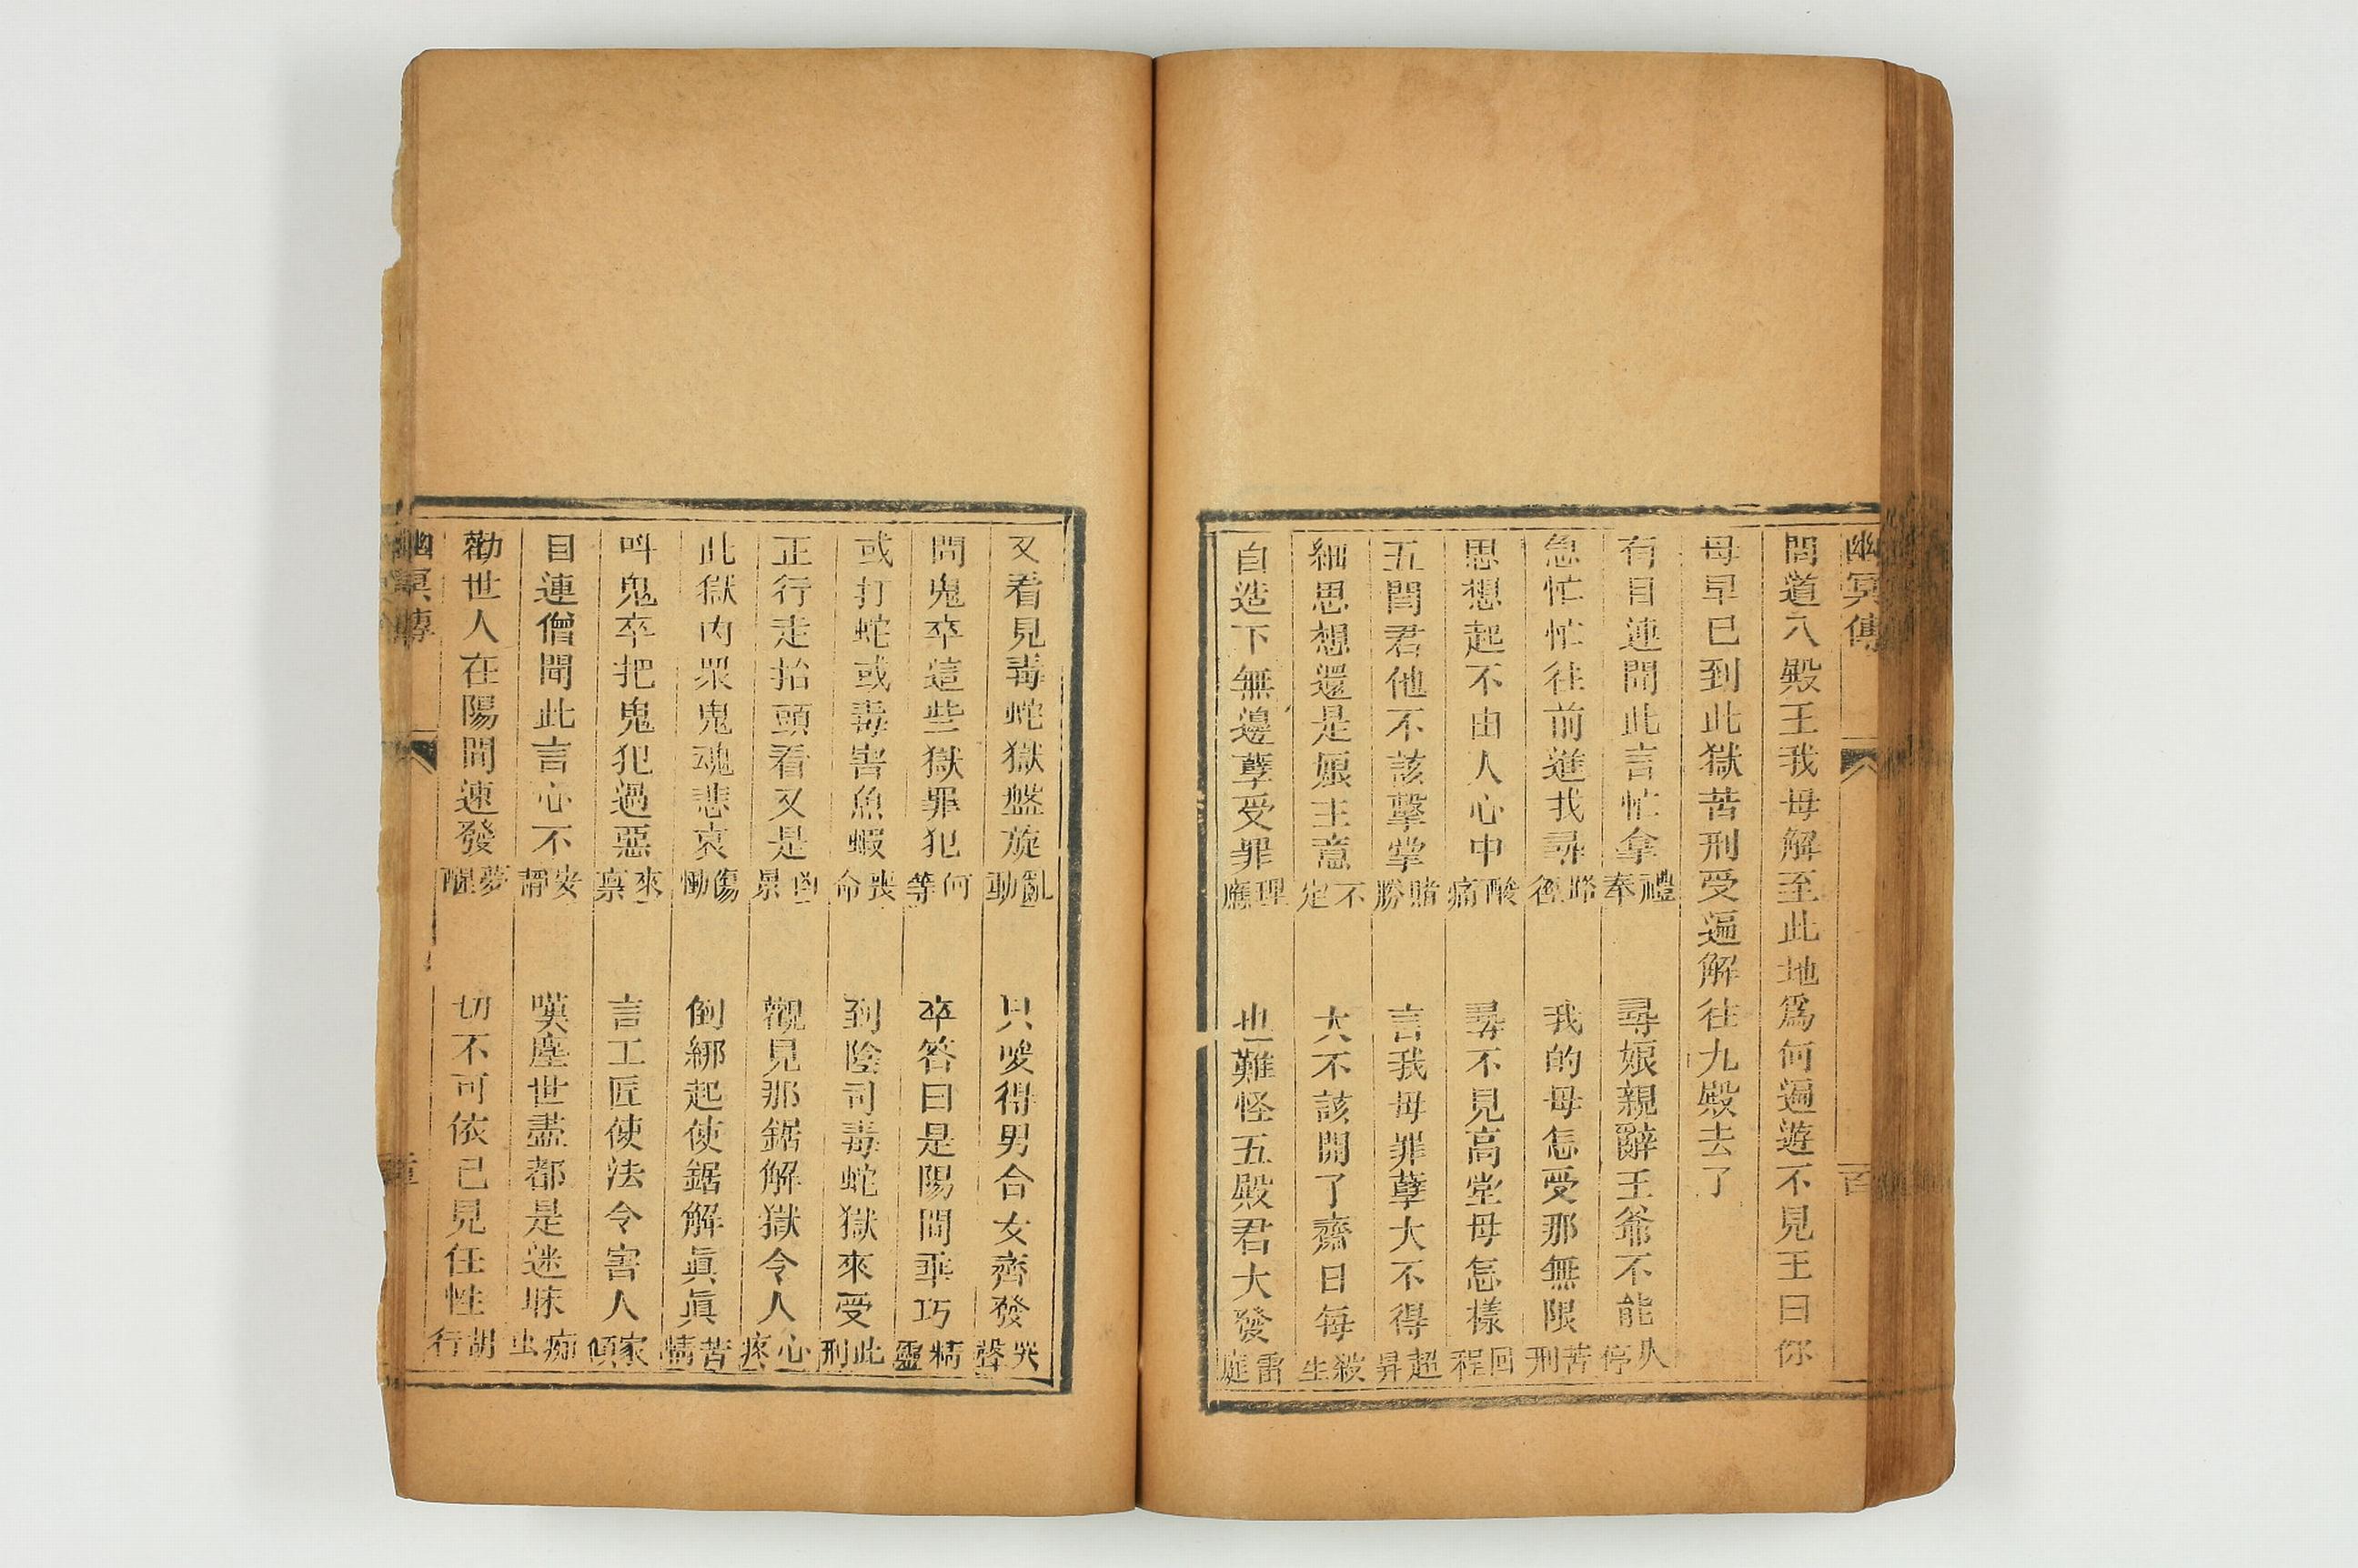 幽冥傳
問道八殿王我母解至此地爲何遍遊不見王曰你
母早已到此獄苦刑受遍解往九殿去了
有目連聞此言忙拿禮奉 尋娘親辭王爺不能久停
急忙忙往前進找尋路徑 我的母怎受那無限苦刑
思想起不由人心中酸痛 尋不見高堂母怎樣回程
五閻君他不該擊掌賭勝 言我母罪孽大不得超昇
細思想還是娘主意不定 大不該開了齋日每殺生
自造下無邊孽受罪理應 也難怪五殿君大發雷庭
又看見毒蛇獄盤旋亂動 只唆得男合女齊發哭聲
問鬼卒這些獄罪犯何等 卒答曰是陽間乖巧精靈
或打蛇或毒害魚蝦喪命 到陰司毒蛇獄來受此刑
正行走抬頭看又是凶景 觀見那鋸解獄令人心疼
此獄內眾鬼魂悲哀傷慟 倒綁起使鋸解眞眞苦情
叫鬼卒把鬼犯過惡來稟 言工匠使法令害人家傾
目連僧聞此言心不安靜 嘆塵世盡都是迷昧痴虫
勸世人在陽間速發夢醒 切不可依己見任性胡行
幽冥傳